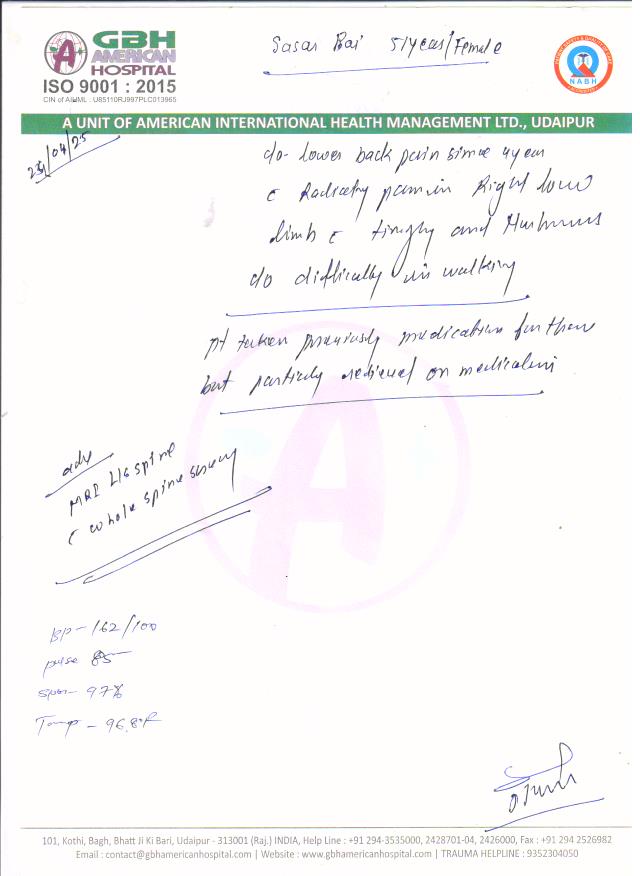 GBH
AMERICAN
HOSPITAL
ISO 9001 : 2015
CIN of AIHML : U85110RJ997PLC013965
Sasar Bai 51year/Female
NABH
A UNIT OF AMERICAN INTERNATIONAL HEALTH MANAGEMENT LTD., UDAIPUR
/04/25
c/o- lower back pain since 4 year
c pain in Right low
limb c and
c/o in walking
pt taken previously medication for
but partialy on
adv
MRI L/S spine
c whole spine
BP - 162/100
pulse 85
spo2- 97%
Temp - 96.8°F
101, Kothi, Bagh, Bhatt Ji Ki Bari, Udaipur - 313001 (Raj.) INDIA, Help Line : +91 294-3535000, 2428701-04, 2426000, Fax : +91 294 2526982
Email : contact@gbhamericanhospital.com | Website : www.gbhamericanhospital.com | TRAUMA HELPLINE : 9352304050